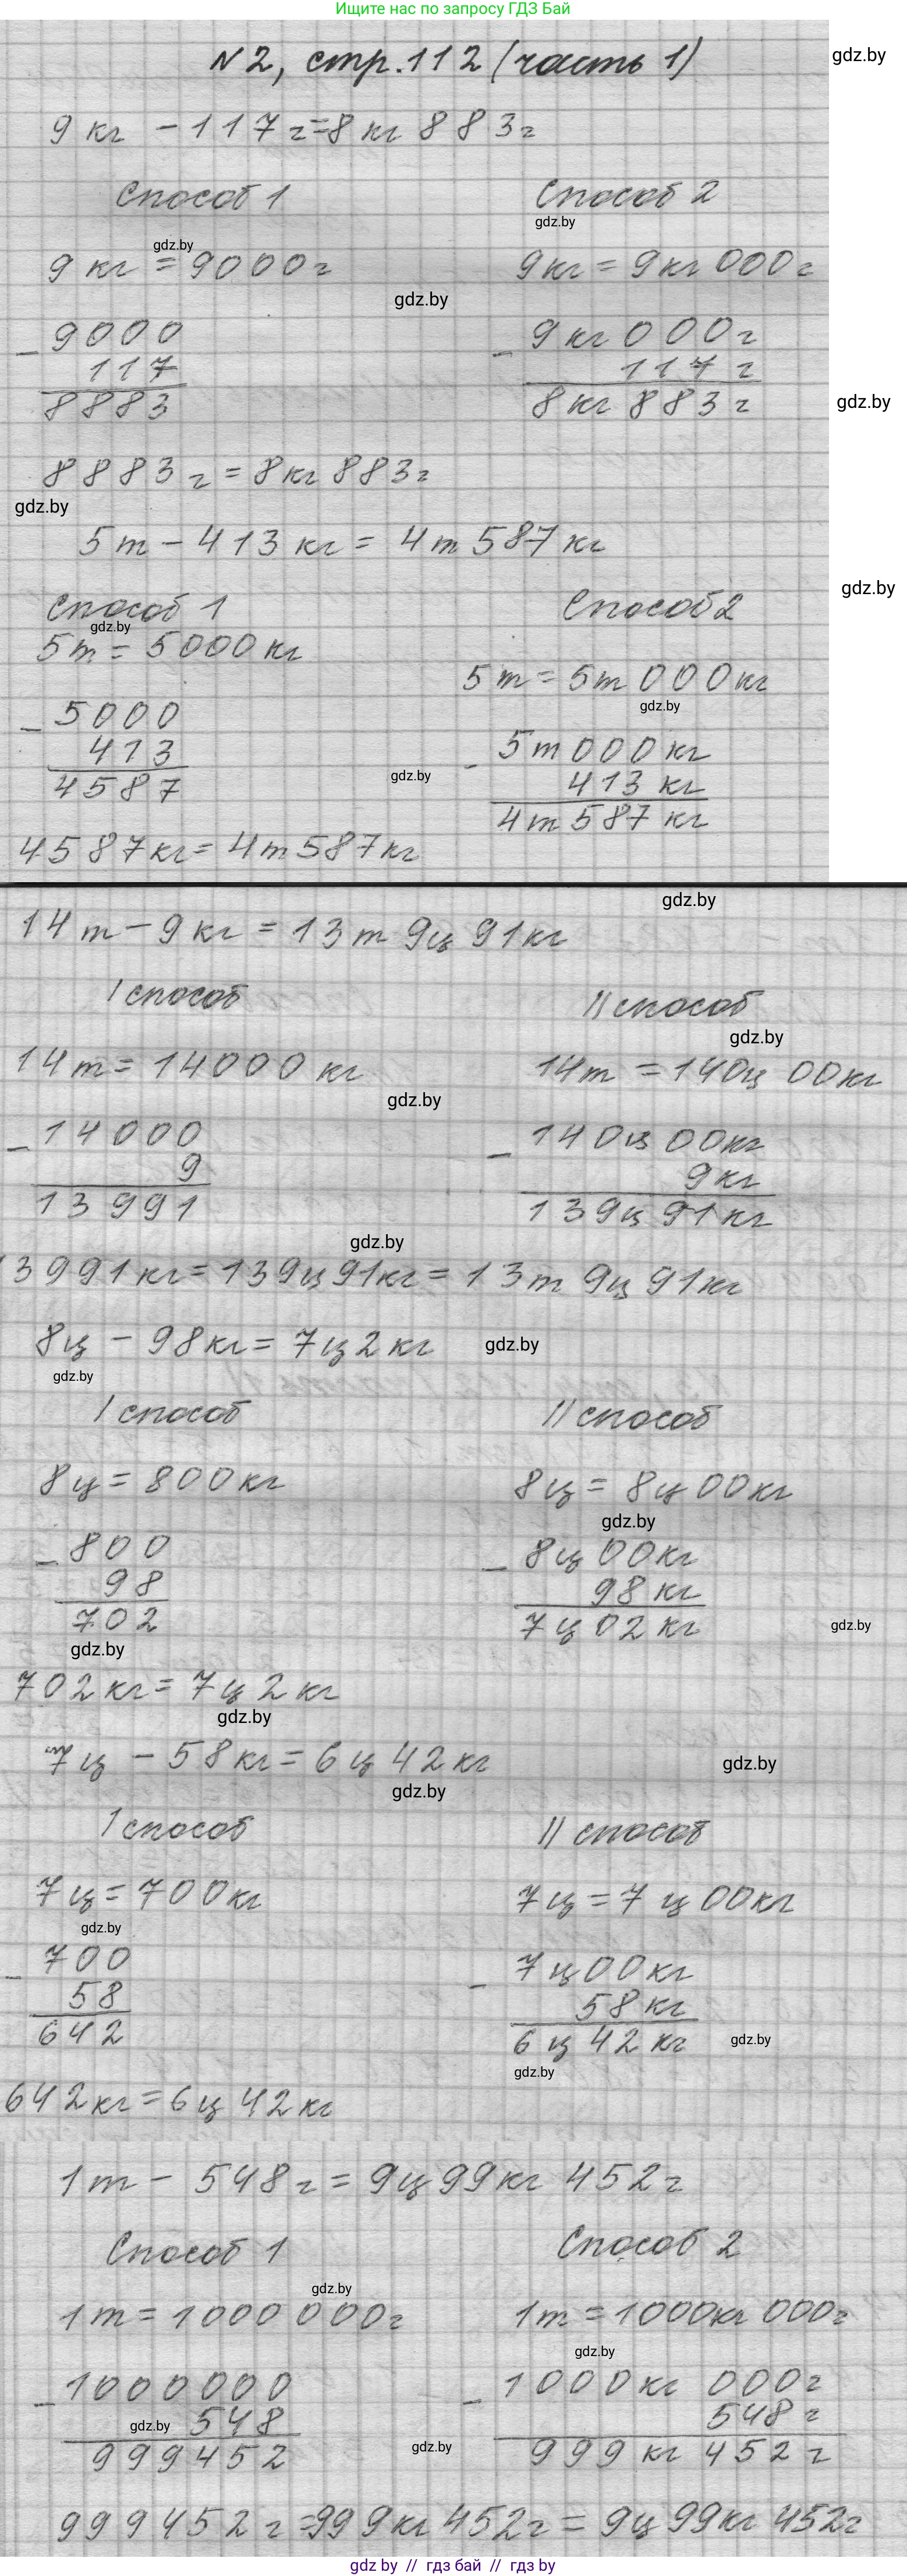 Ищите нас по запросу ГДЗ Бай
N2, стр.112 (часть 1)
gdz.by
9 кг - 117 г = 8 кг 883 г
Способ 1 Способ 2
gdz.by
gdz.by
9 кг = 9000 г 9 кг = 9 кг 000 г
gdz.by
- 9000 - 9 кг 000 г
117 117 г
8883 8 кг 883 г
gdz.by
8883 г = 8 кг 883 г
gdz.by
5 т - 413 кг = 4 т 587 кг
gdz.by
Способ 1 Способ 2
gdz.by
5 т = 5000 кг
5 т = 5 т 000 кг
gdz.by
- 5000 - 5 т 000 кг
413 413 кг
gdz.by
4587 4 т 587 кг
4587 кг = 4 т 587 кг
gdz.by
14 т - 9 кг = 13 т 9 ц 91 кг
I способ II способ
gdz.by
14 т = 14000 кг 14 т = 140 ц 00 кг
gdz.by
- 14000 - 140 ц 00 кг
9 9 кг
13991 139 ц 91 кг
gdz.by
13991 кг = 139 ц 91 кг = 13 т 9 ц 91 кг
8 ц - 98 кг = 7 ц 2 кг gdz.by
gdz.by
I способ II способ
8 ц = 800 кг 8 ц = 8 ц 00 кг
gdz.by
- 800 - 8 ц 00 кг
98 98 кг
702 7 ц 02 кг
gdz.by
gdz.by
702 кг = 7 ц 2 кг
gdz.by
7 ц - 58 кг = 6 ц 42 кг gdz.by
gdz.by
I способ II способ
7 ц = 700 кг 7 ц = 7 ц 00 кг
gdz.by
- 700 - 7 ц 00 кг
58 58 кг
642 6 ц 42 кг gdz.by
gdz.by
642 кг = 6 ц 42 кг
1 т - 548 г = 9 ц 99 кг 452 г
Способ 1 Способ 2
gdz.by
1 т = 1000 000 г 1 т = 1000 кг 000 г
gdz.by
- 1000000 - 1000 кг 000 г
gdz.by 548 548 г
gdz.by
999452 999 кг 452 г
999452 г = 999 кг 452 г = 9 ц 99 кг 452 г
gdz by // гдз бай // гдз by